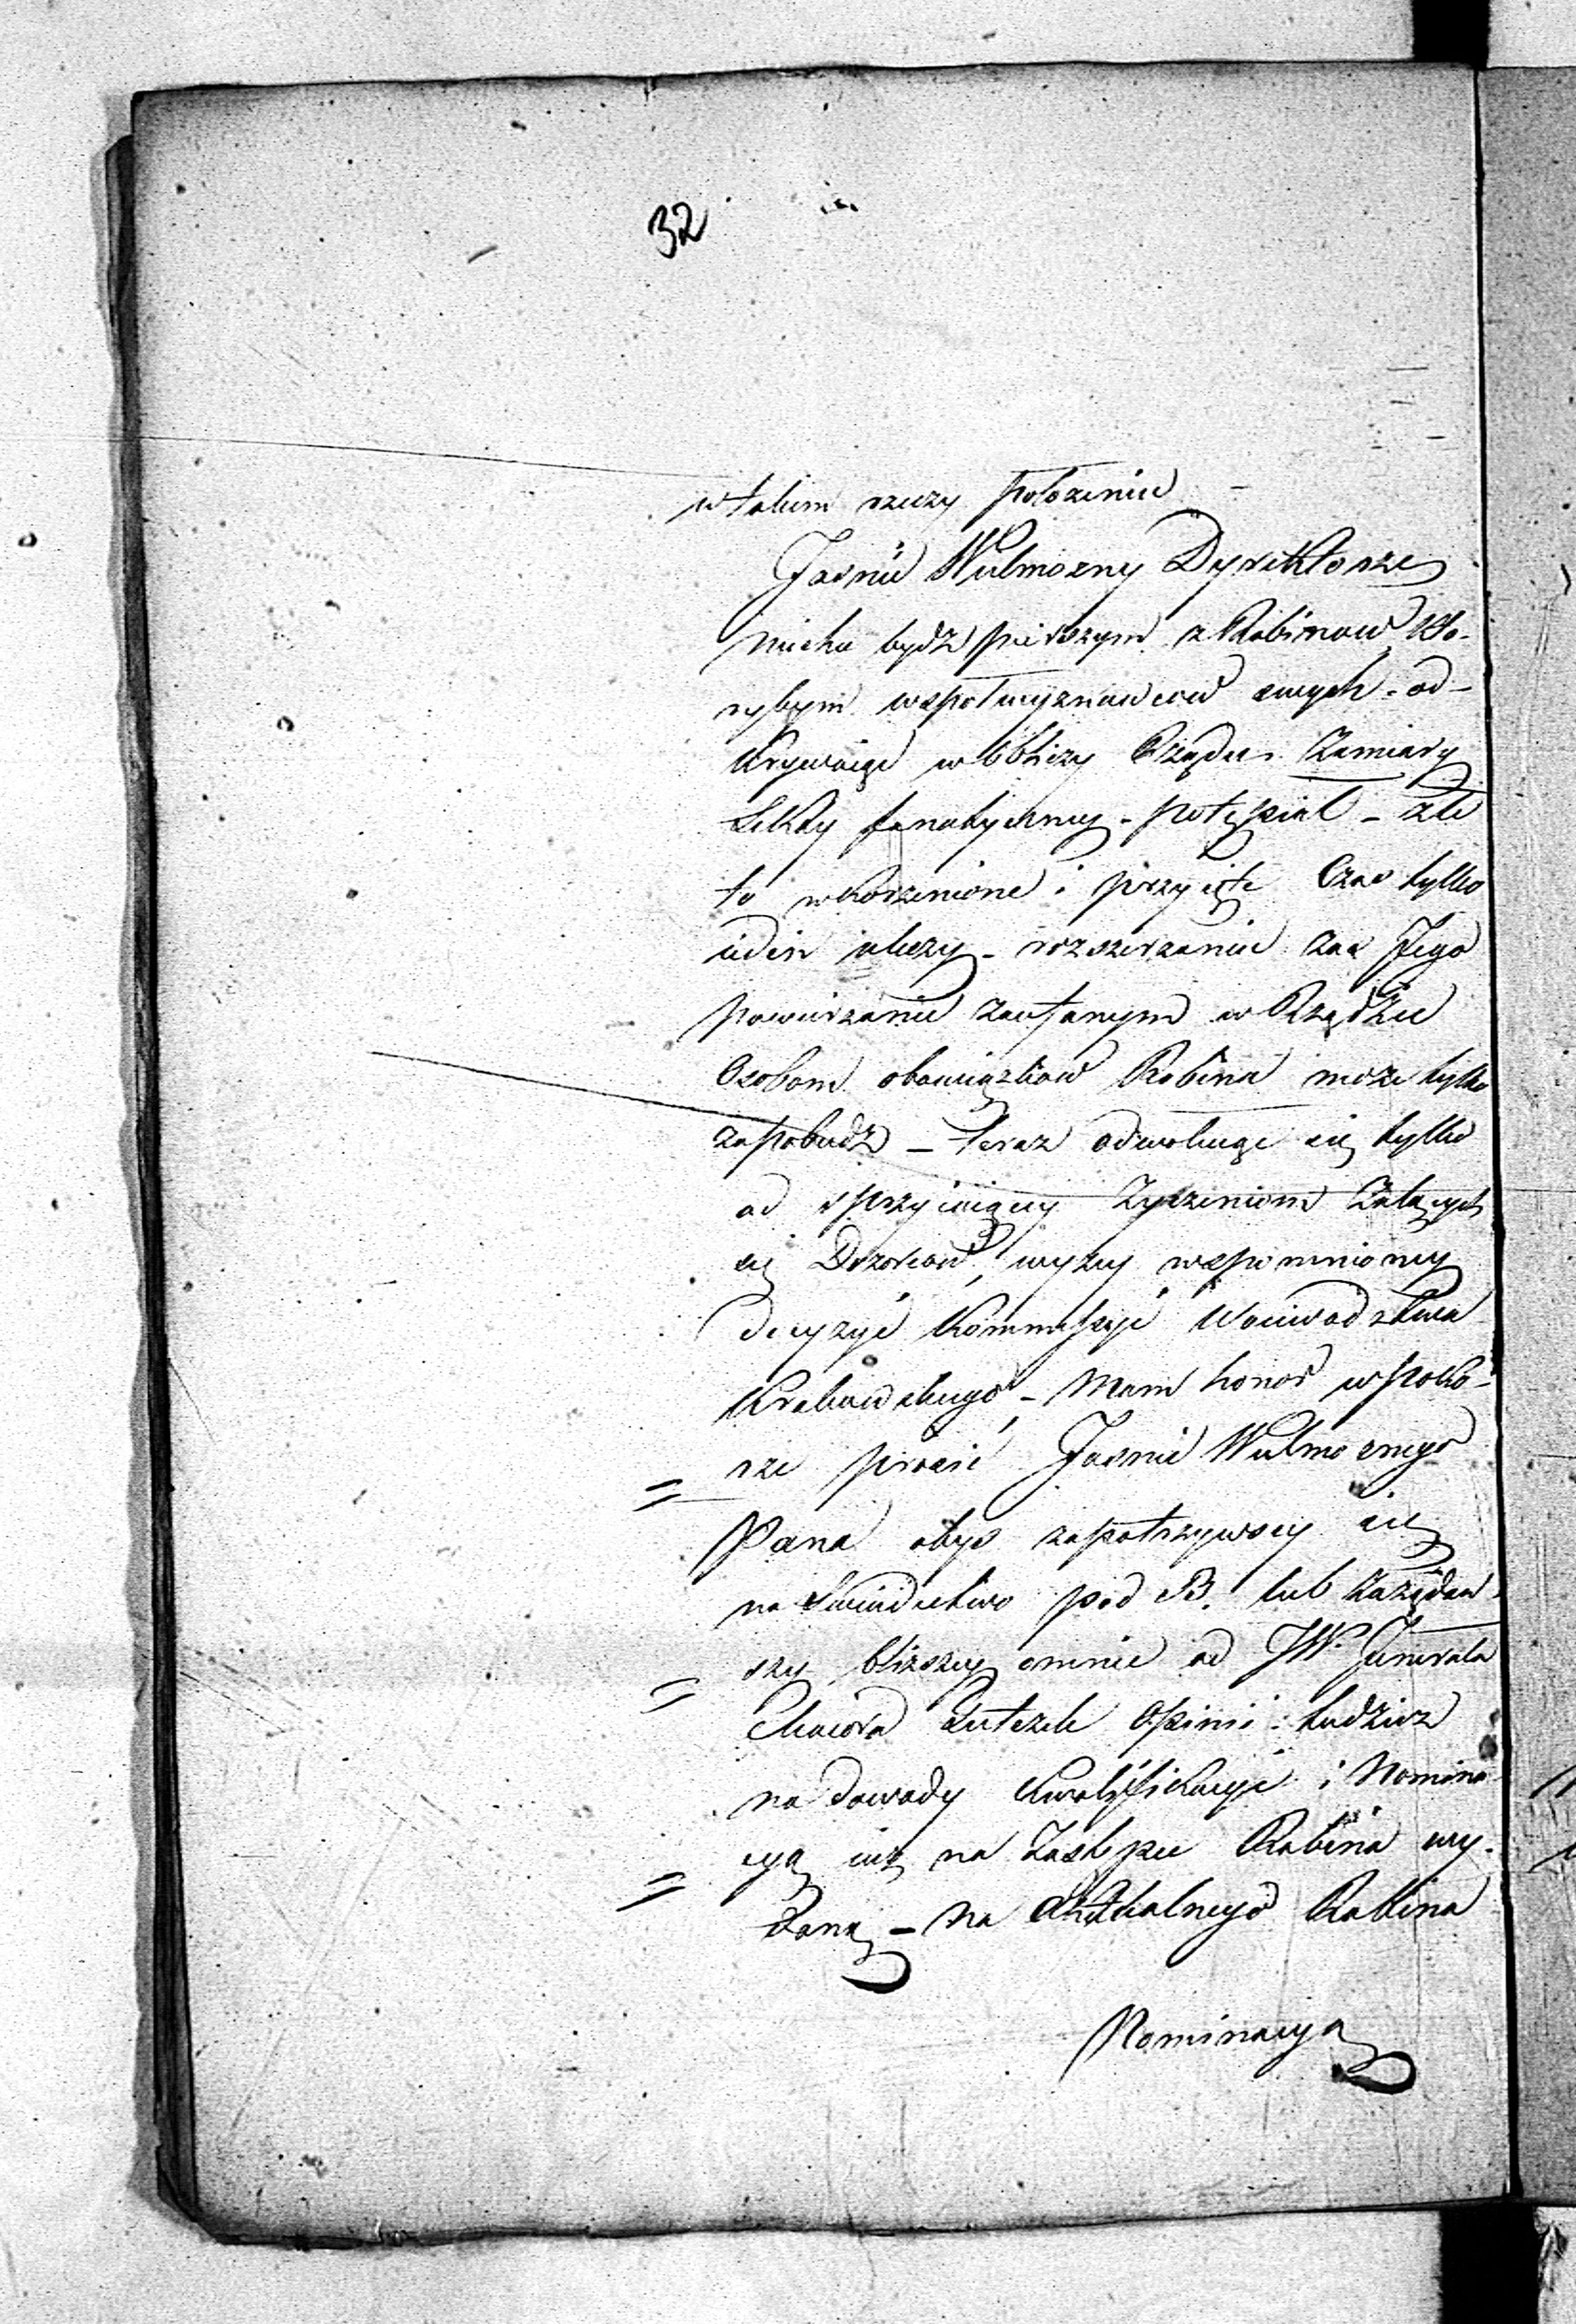 32
w takim rzeczy położeniu
Jaśnie Wielmożny Dyrektorze
niechce bydź pierwszym z Rabinow kto-
rybym wspołwyznawcow swych od-
krywaiąc w obliczy Rządu Zamiary
Sekty fanatyczney - potępiał - złe
to wkorzenione i przyięte Czas tylko
ieden uleczy - rozszerzanie zaś Jego
powierzanie zaufanym w Rządzie
Osobom obowiązkow Rabina może tylko
zapobiedz - teraz odwołuiąc się tylko
od sprzyiaiący Życzeniom
się Dozorcow, wyzey wspomnioney
decyzyi Kommissyi Woiewodztwa
Krakowskiego, - Mam honor w poko-
rze prosić Jaśnie Wielmożnego
Pana abyś zapatrzywszy się
na Swiadectwo pod B. lub Zażądaw-
szy bliższey omnie od JW. Jenerała
Opinii: tudzież
na dowody kwalifikacyi i Nomina-
cyą iuż na Zastępce Rabina wy-
daną - na aktualnego Rabina
Nominacyą